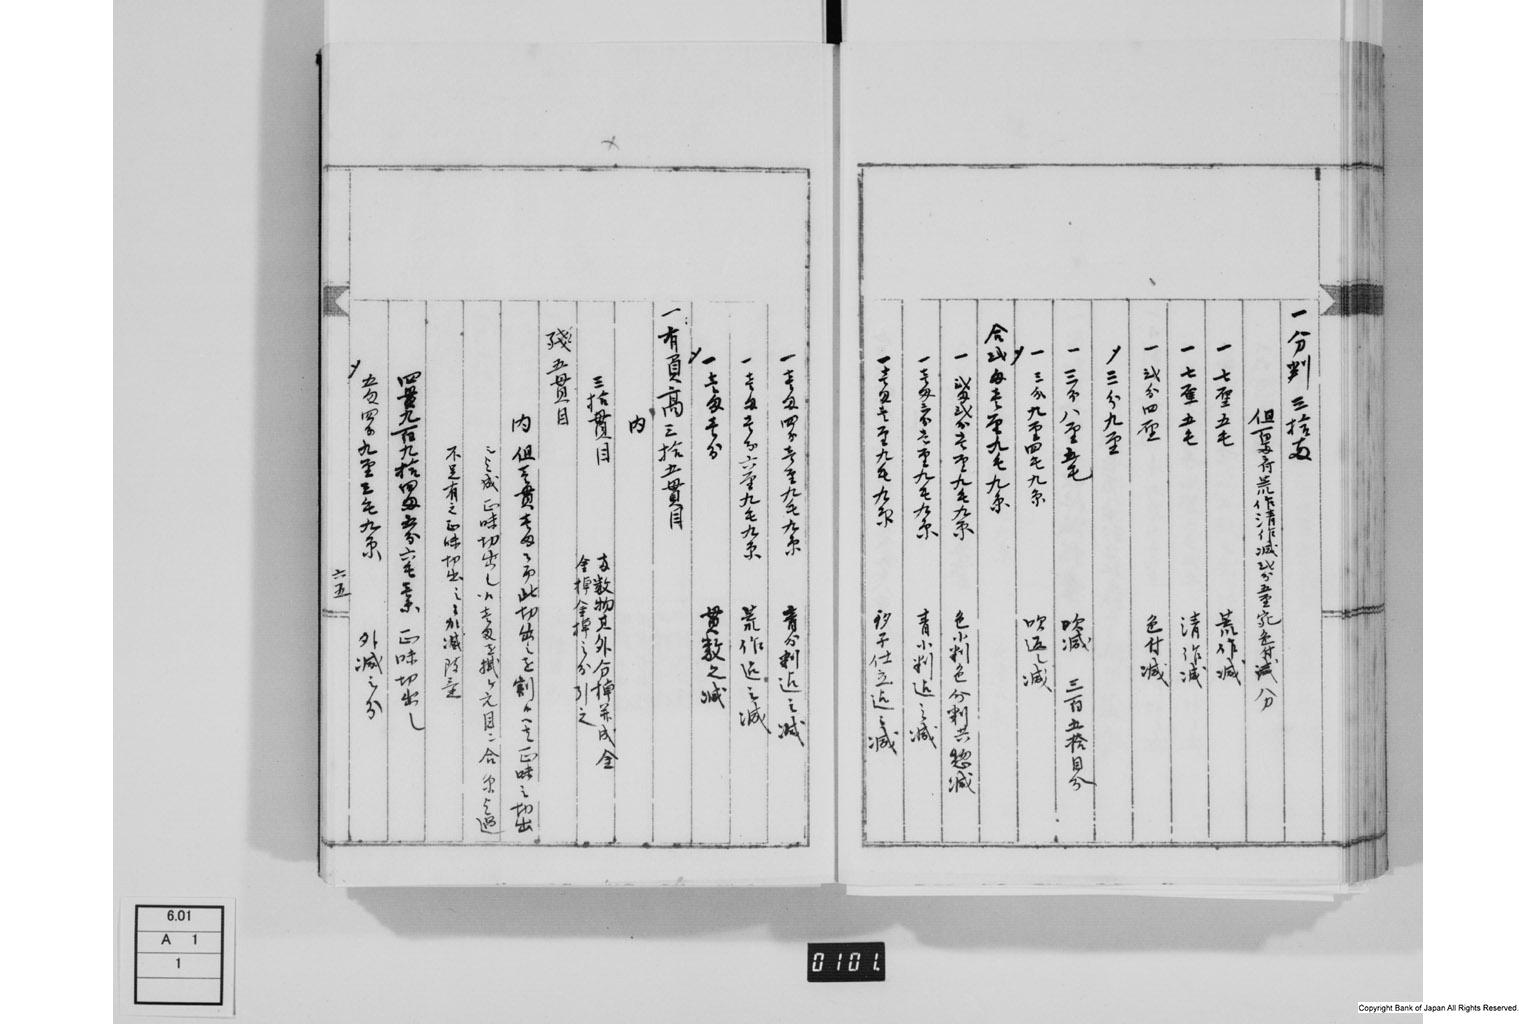 一分判三拾両
但百両ニ付荒作清作減弐分五厘宛色付減八分
一七厘五毛 荒作減
一七厘五毛 清作減
一弐分四厘 色付減
〆三分九厘
一三分八厘五毛 吹減 三百五拾目分
〆一三分九厘四毛九糸 吹返し減
合弐両壱厘九毛九糸
一弐両弐分壱厘九毛九糸 色小判色分判共惣減
一壱両三分壱厘九毛九糸 青小判迄之減
一壱両壱厘九毛九糸 砂子仕立迄之減
一壱両四分壱厘九毛九糸 青分判迄之減
一壱両壱分六厘九毛九糸 荒作迄之減
〆一壱両壱分 貫数之減
一有員高三拾五貫目
内
三拾貫目 両数物其外分棹并成金
金棹金棹之分引之
残五貫目
内 但壱貫壱両ニ而此切出しを割ハ正味之切出
之減正味切出し以壱両を掛ケ元目ニ合尓与過
不足有之正味切出之ヲ加減致置
四貫九百九拾四両五分六毛壱糸 正味切出し
〆五両四分九厘三毛九糸 外減之分
六五
6.01
A 1
1
0101.
Copyright Bank of Japan All Rights Reserved.